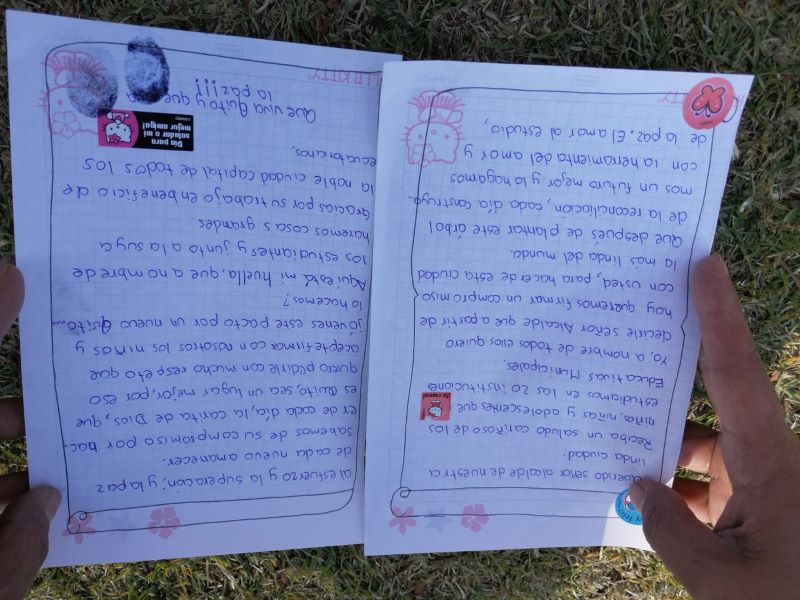 Querido señor alcalde de nuestra
linda ciudad:
Reciba un saludo cariñoso de los
niños, niñas y adolescentes que
estudiamos en las 20 institucione
Educativas Municipales.
Yo, a nombre de todos ellos quiero
decirle señor Alcalde que a partir de
hoy queremos firmar un compromiso
con usted, para hacer de esta ciudad
la más linda del mundo.
Que después de plantar este árbol
de la reconciliación, cada día construya-
mos un futuro mejor y lo hagamos
con la herramienta del amor y
de la paz. El amor al estudio,
al esfuerzo y la superación; y la paz
de cada nuevo amanecer.
Sabemos de su compromiso por hac-
er de cada día, la carita de Dios, que
es Quito, sea un lugar mejor, por eso
quiero pedirle con mucho respeto que
acepte firmar con nosotros los niños y
jóvenes este pacto por un nuevo Quito...
lo hacemos?
Aquí está mi huella, que a nombre de
los estudiantes y junto a la suya
haremos cosas grandes
Gracias por su trabajo en beneficio de
la noble ciudad capital de todos los
ecuatorianos.
Día para
saludar a mi
mejor amiga!
Que viva Quito y que
la paz!!!